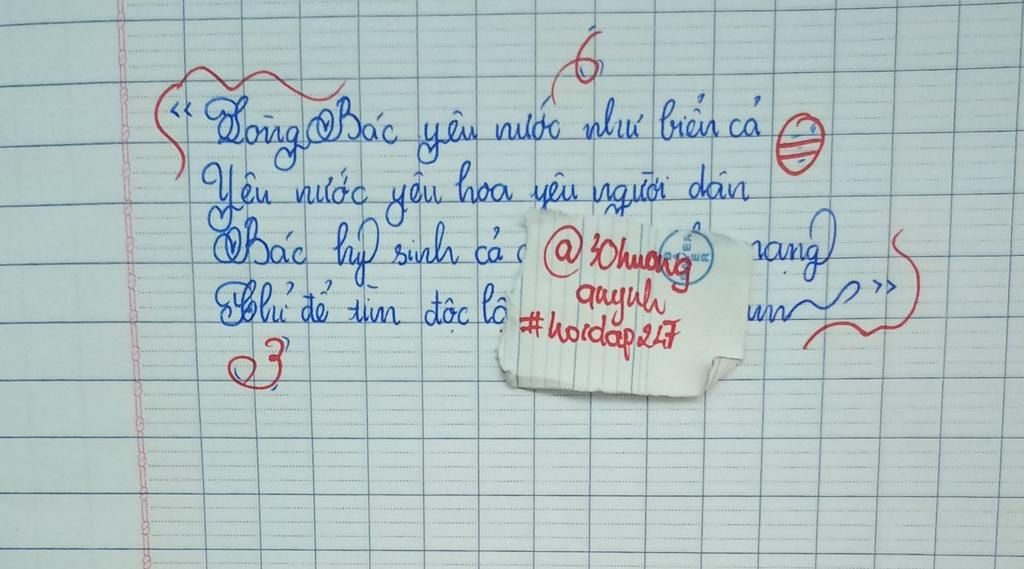 “ Lòng Bác yêu nước như biển cả
Yêu nước yêu hoa yêu người dân
Bác hy sinh cả
Thứ để tìm độc lậ
@30huong
quynh
#hoidap247